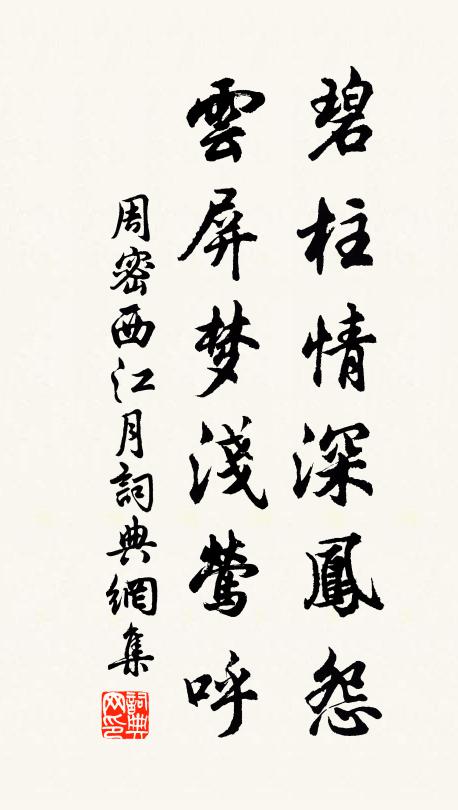 碧柱情深鳳怨
雲屏梦淺鶯呼
周密西江月詞典網集
詞典网印